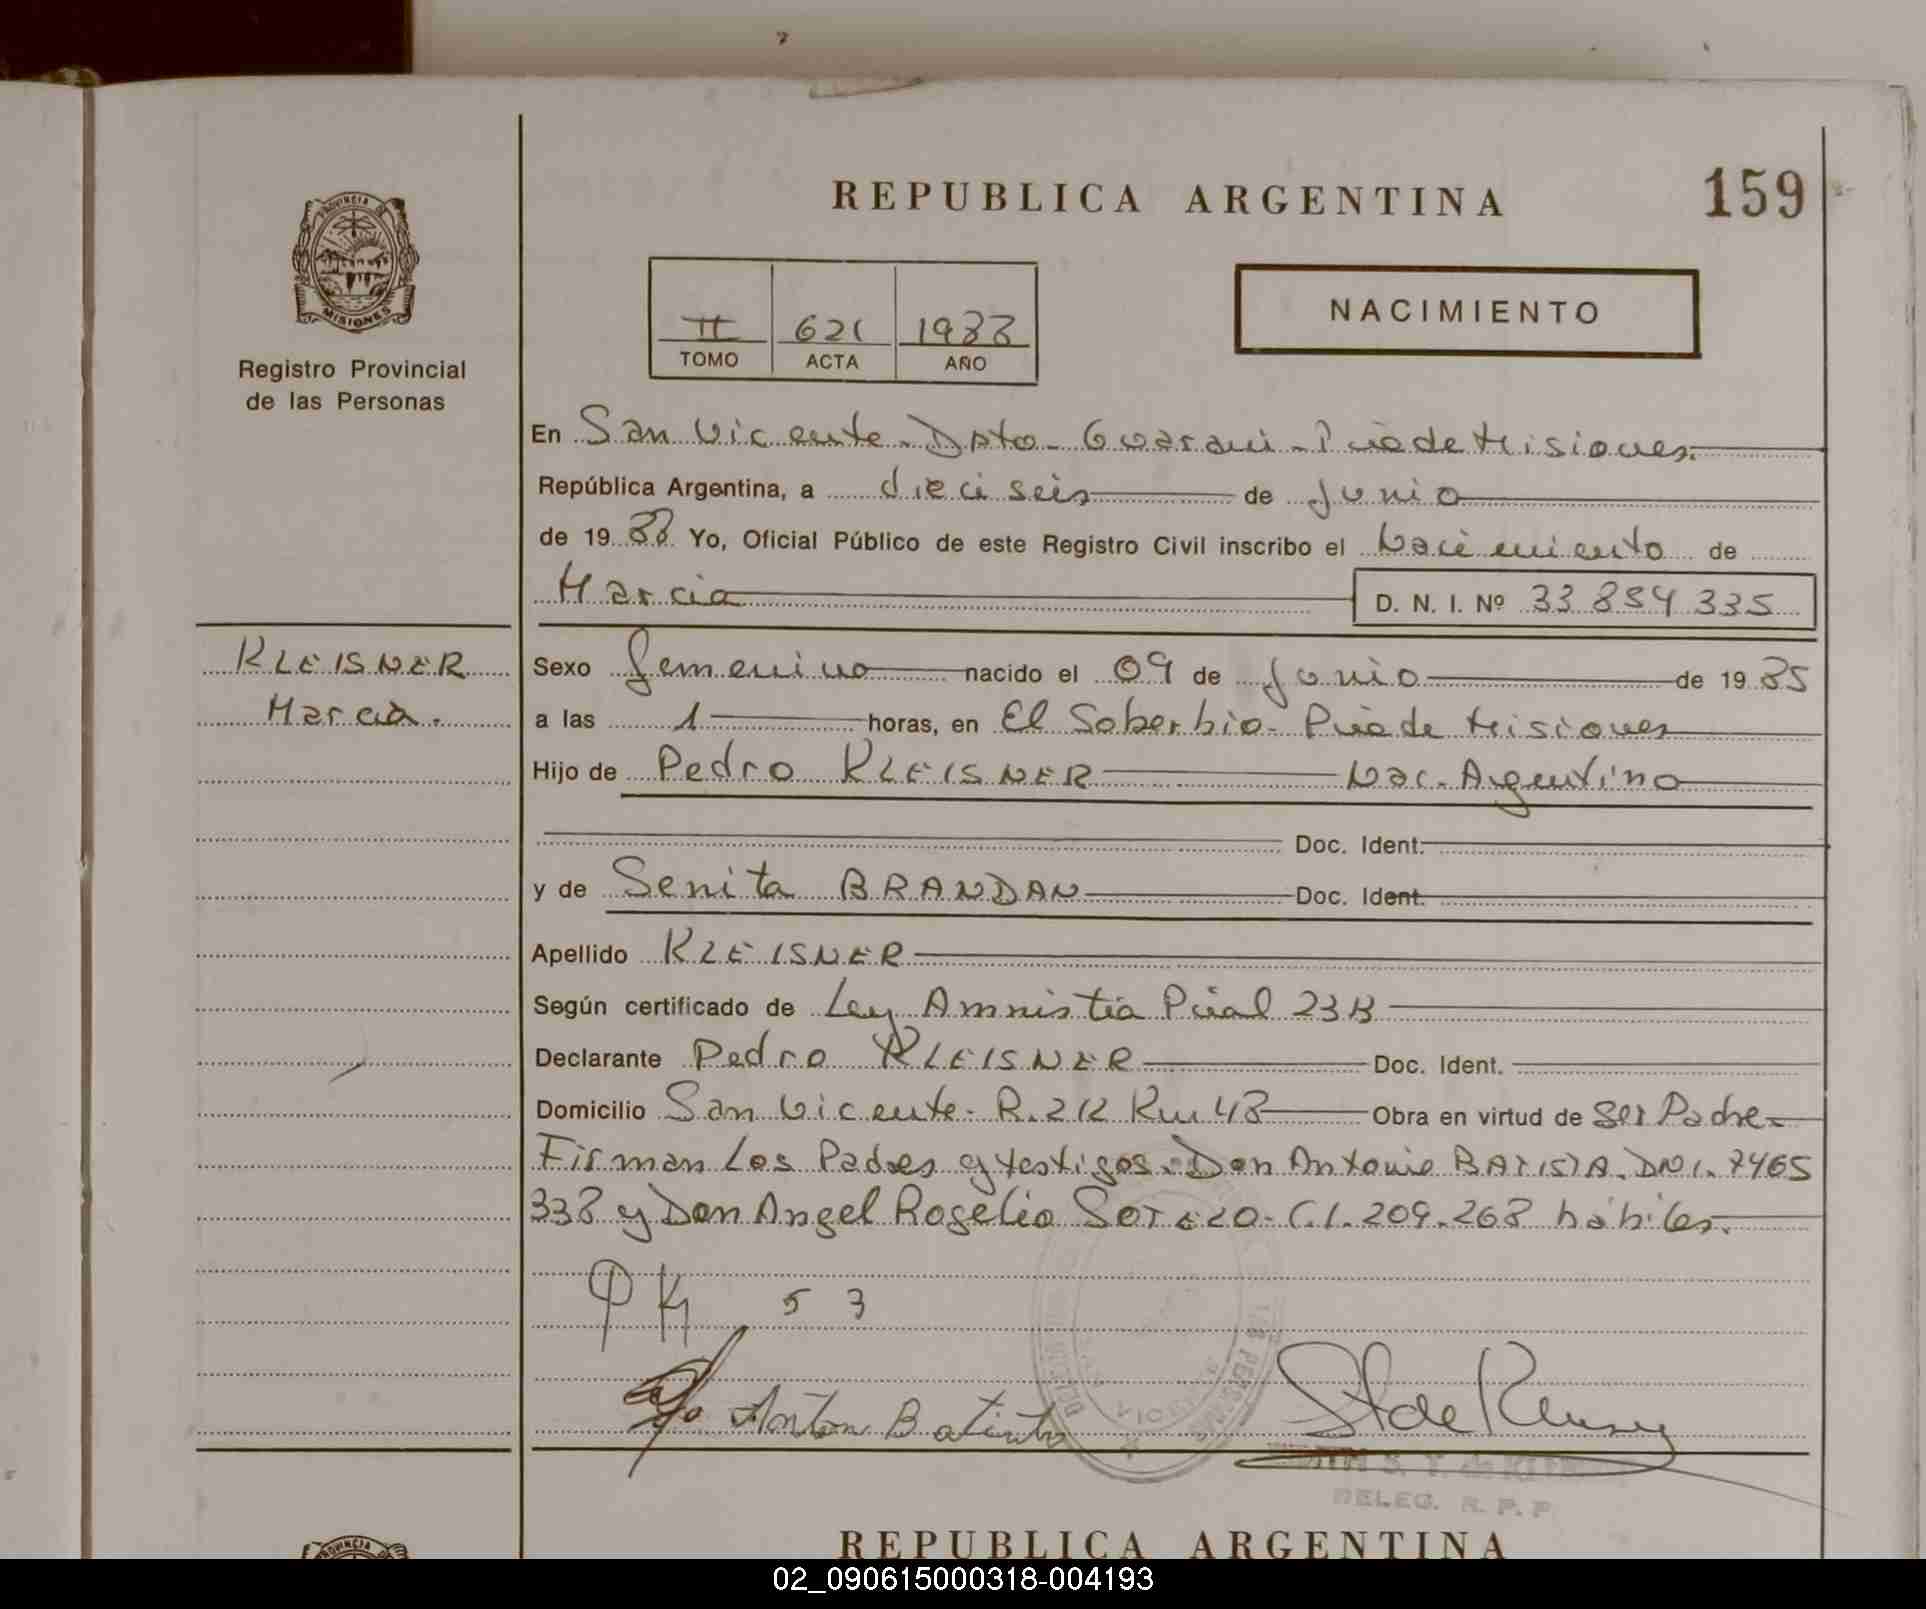 REPUBLICA ARGENTINA
159
PROVINCIA DE
MISIONES
Registro Provincial
de las Personas
II 621 1988
TOMO ACTA AÑO
NACIMIENTO
En San Vicente - Dpto - Guarani - Pcia de Misiones.
República Argentina, a dieciseis de Junio
de 19 88 Yo, Oficial Público de este Registro Civil inscribo el Nacimiento de
Marcia D. N. I. Nº 33 854 335
KLEISNER
Marcia.
Sexo femenino nacido el 09 de Junio de 19 85
a las 1 horas, en El Soberbio - Pcia de Misiones
Hijo de Pedro KLEISNER Nac. Argentino
Doc. Ident.
y de Senita BRANDAN Doc. Ident.
Apellido KLEISNER
Según certificado de Ley Amnistia Pcial
Declarante Pedro KLEISNER Doc. Ident.
Domicilio San Vicente - R. 212 Km 48 Obra en virtud de ser Padre -
Firman Los Padres y testigos. Don Antonio BATISTA. DNI. 7465
338 y Don Angel Rogelio SOTELO - C.I. 209.268 hábiles.
PK 53
Anton Batista
VICENTE
DELEG. R. P. P.
REPUBLICA ARGENTINA
02_090615000318-004193